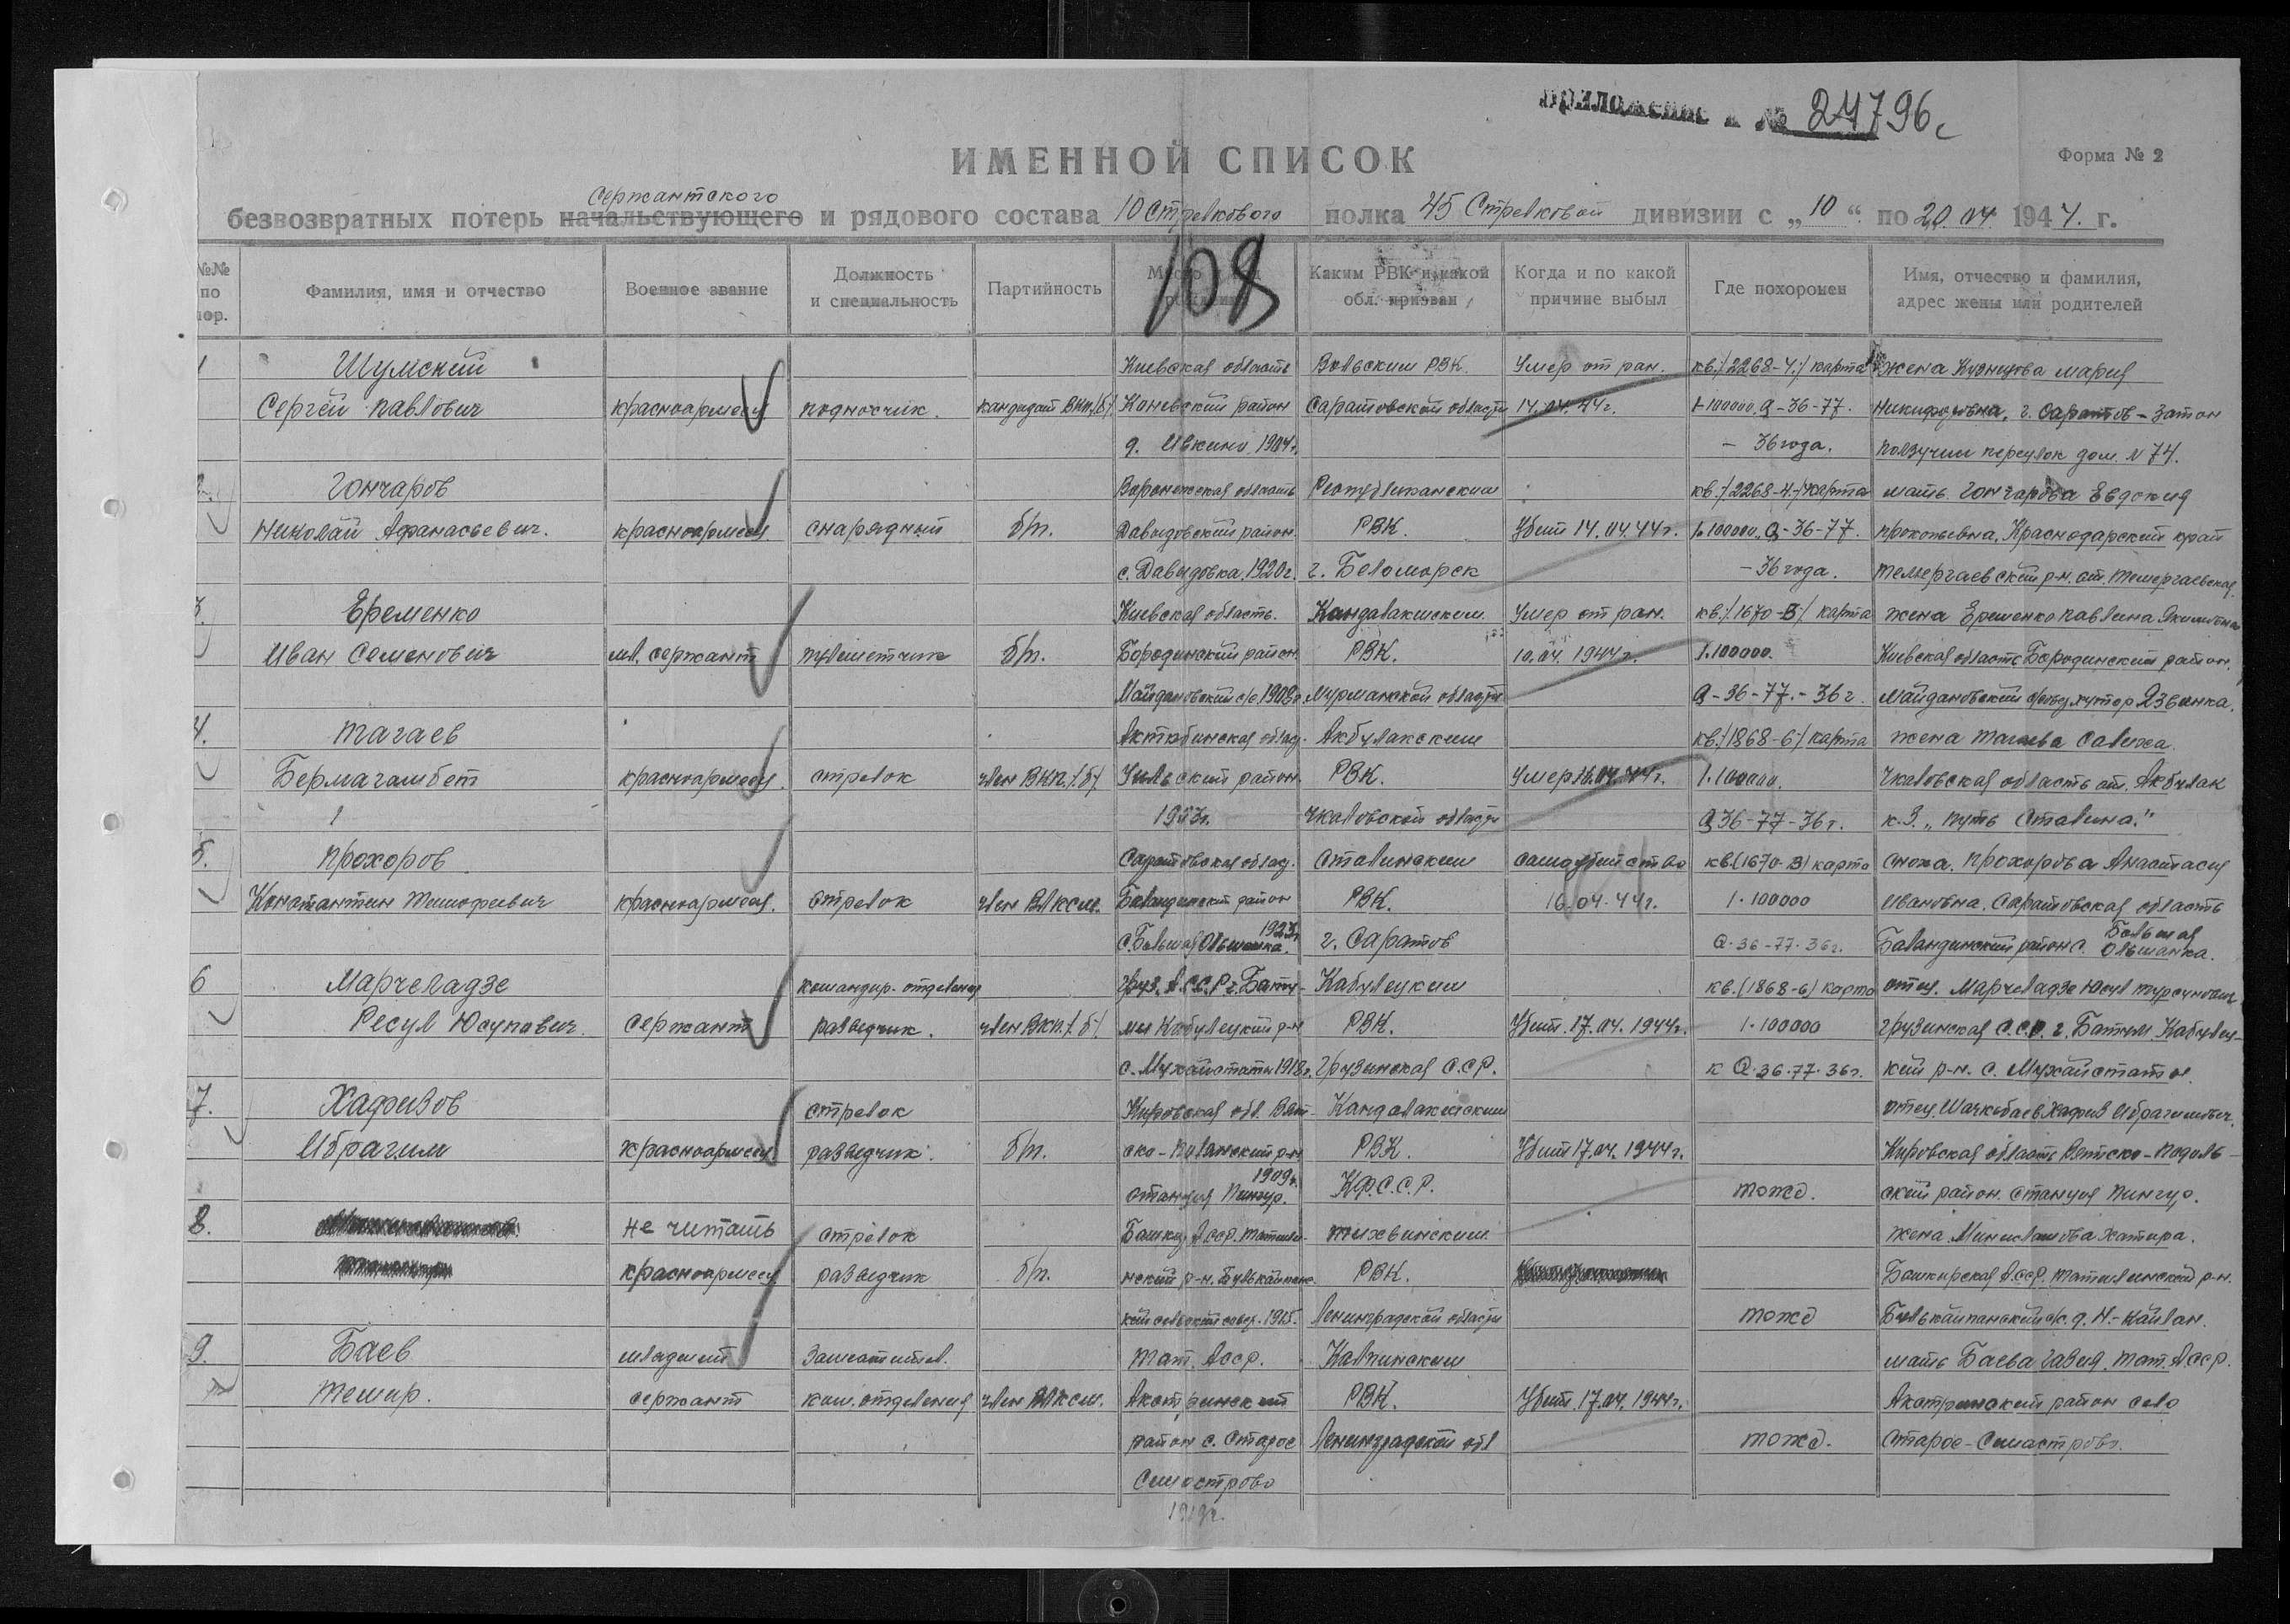 приложение к № 24796с
ИМЕННОЙ СПИСОК
Форма № 2
Сержантского
безвозвратных потерь начальствующего и рядового состава 10 Стрелкового полка 45 Стрелковой дивизии с „10“ по 20.04 1944. г.
108
№№ по пор.
Фамилия, имя и отчество
Военное звание
Должность и специальность
Партийность
Место и год рождения
Каким РВК и какой обл. призван
Когда и по какой причине выбыл
Где похоронен
Имя, отчество и фамилия, адрес жены или родителей
1 Шумский Киевская область Вольским РВК. Умер от ран. кв./2268-4/ карта жена Кузнецова Мария
Сергей Павлович красноармеец подносчик. кандидат ВКП/б/ Каневский район Саратовской области 14.04.44г. 1-100000 Q-36-77. Никифоровна, г. Саратов-Затон
д. 1904г. – 36 года. переулок дом. № 74.
2. Гончаров Воронежская область Республиканским кв./2268-4/ карта мать. Гончарова Евдокия
Николай Афанасьевич. красноармеец снарядный б/п. Давыдовский район РВК. Убит 14.04.44г. 1.100000. Q-36-77. Прокопьевна, Краснодарский край
с. Давыдовка. 1920г. г. Беломорск – 36 года.
3. Еременко Киевская область. Кандалакшским Умер от ран. кв./1670-В/ карта жена Еременко Павлина
Иван Семенович мл. сержант пулеметчик б/п. Бородинский район РВК. 10.04. 1944г. 1.100000. Киевская область Бородинский район.
Майдановский с/с. Мурманской области Q-36-77.-36г. Майдановский хутор
4. Тагаев Актюбинская облас. Акбулакским кв./1868-6/ карта жена Тагаева
Бермагамбет красноармеец. стрелок член ВКП./б/. Уильский район. РВК. Умер 1.100000. Чкаловская область ст. Акбулак
Чкаловской области Q 36-77-36г. к.З. „Путь Сталина."
5. Прохоров Саратовская облас. Сталинским самоубийство кв(1670-В) карта сноха. Прохорова Анастасия
Константин Тимофеевич красноармеец. стрелок член ВЛКСМ. Баландинский район РВК. 16.04.44г. 1.100000 Ивановна. Саратовская область
с. Большая Ольшанка. 1923г г. Саратов Q.36-77.36г. Баландинский район с. Большая Ольшанка.
6 Марчеладзе командир. отделения Груз. С.С.Р. г. Бату- Кобулецким кв.(1868-6) карта отец. Марчеладзе Юсуп
Ресул Юсупович. сержант разведчик. член ВКП/.б/. ми Кобулецкий р-н РВК. Убит. 17.04. 1944г. 1.100000 Грузинская С.С.Р. г. Батум. Кобулец-
с. Мухаистати 1918г. Грузинская С.С.Р. к Q.36.77.36г. кий р-н. с. Мухаистати.
7. Хафизов стрелок Кировская обл. Вят- Кандалакшским отец. Хафиз Ибрагимович.
Ибрагим красноармеец разведчик. б/п. ско-Полянский р-н РВК. Убит 17.04. 1944г. Кировская область Вятско-
станция Пингур. 1909г. КФ.С.С.Р. тожд. ский район. станция Пингур.
8. не читать стрелок Башкир. АССР. Тихвинским жена. Хатира.
красноармеец разведчик б/п. РВК. Башкирская АССР. р-н.
1925. Ленинградской области тожд
9. Баев младший Заместител. Тат. АССР. Калининским мать Баева Тат. АССР.
Темир. сержант ком. отделения член ВЛКСМ. РВК. Убит 17.04. 1944г. район село
район с. Старое Ленинградской обл тожд. Старое-
1919г.